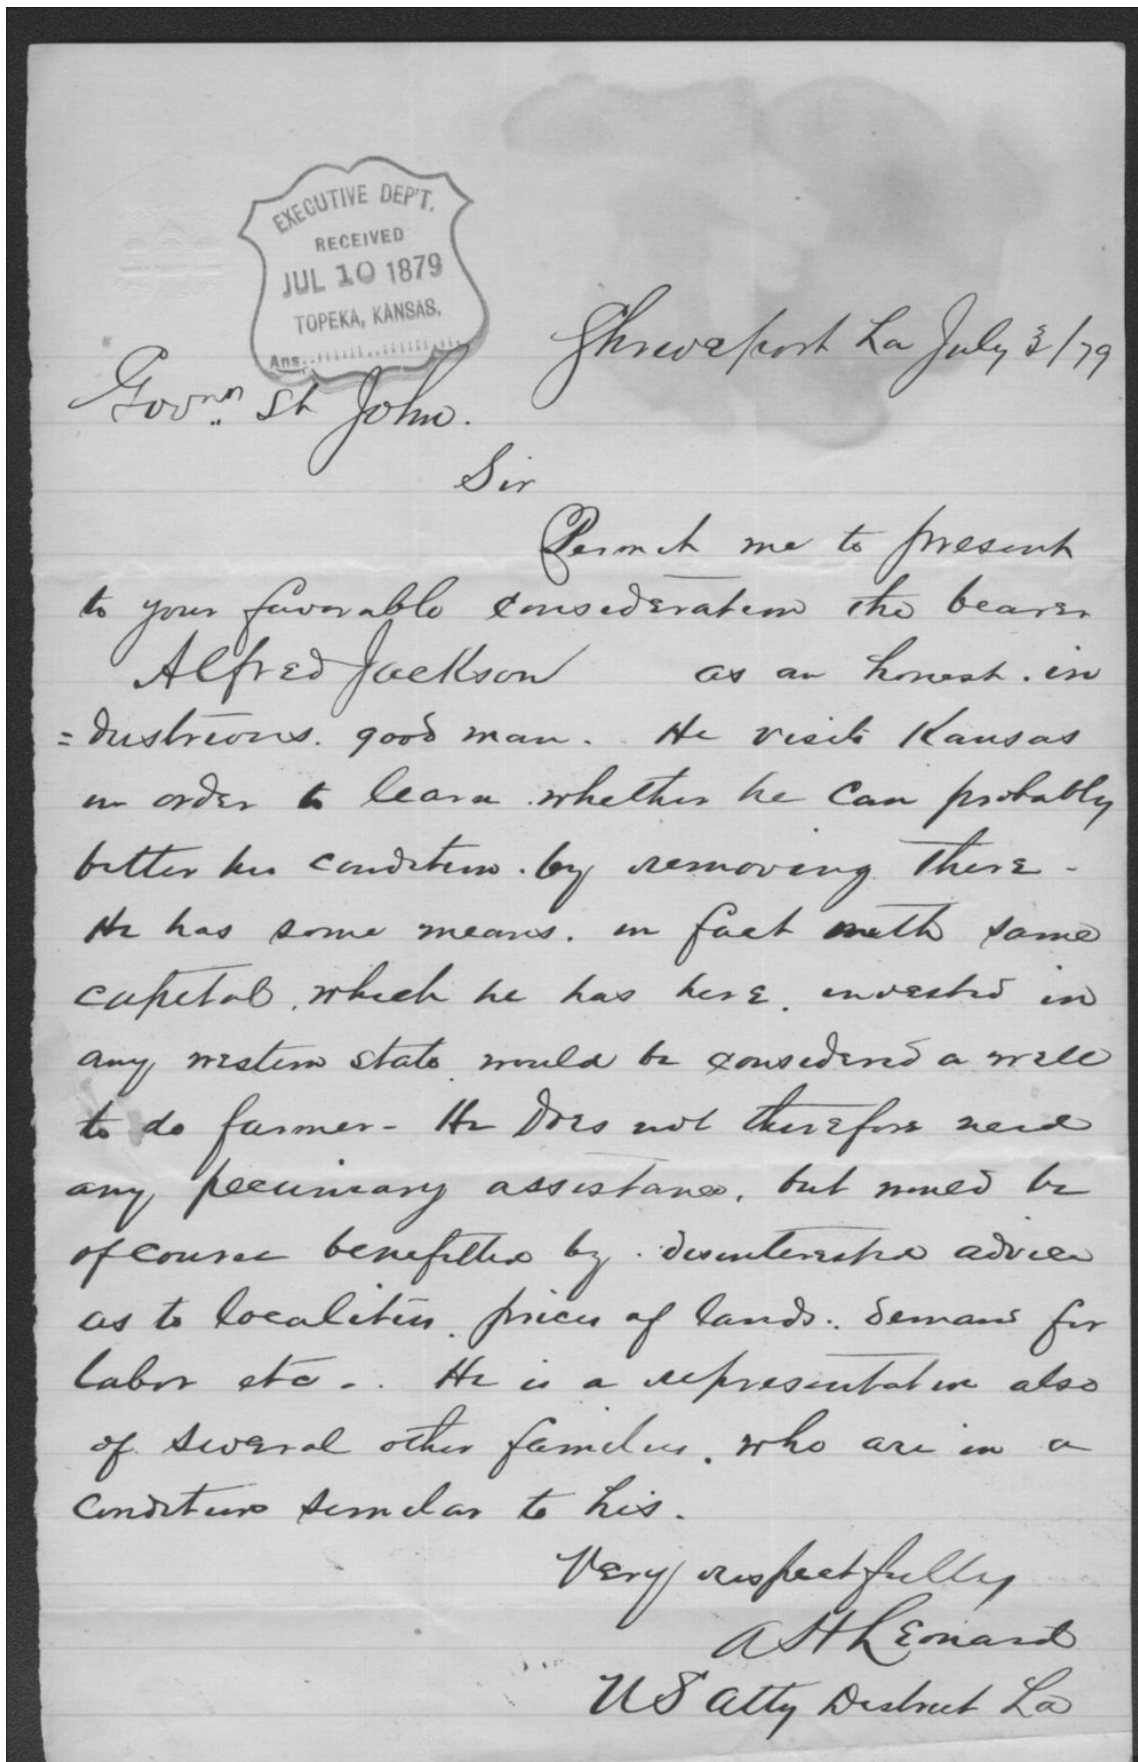 EXECUTIVE DEP'T.
RECEIVED
JUL 10 1879
TOPEKA, KANSAS.
Ans.
Shreveport La July 3/79
Govnr St John.
Sir
Permit me to present
to your favorable consideration the bearer
Alfred Jackson as an honest. in
=dustrious. good man. He visits Kansas
in order to learn whether he can probably
better his condition. by removing there -
He has some means. in fact with same
capital. which he has here. invested in
any western state. would be considered a well
to do farmer - He does not therefore need
any pecuniary assistance. but would be
of course benefitted by disinterested advice
as to localities. prices of lands. demand for
labor etc -. He is a representative also
of several other families. who are in a
condition similar to his.
Very respectfully
A H Leonard
US Atty District La